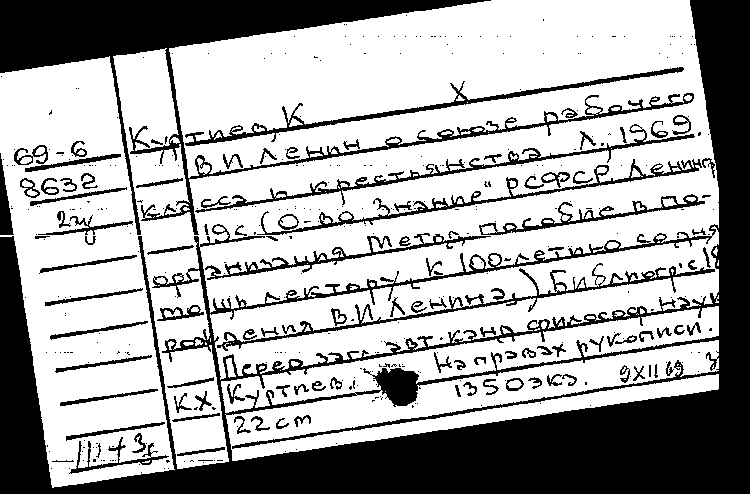 Куртиев, К Х
69-6
В.И. Ленин о союзе рабочего
8632
класса и крестьянства. Л., 1969.
19с. (О-во „Знание" РСФСР. Ленингр
организация. Метод. пособие в по-
мощь лектору, „К 100-летию со дня
рождения В.И. Ленина„) Библиогр: с.18
Перед. загл. авт.: канд. философ. наук
К.Х. Куртиев. На правах рукописи.
22 cm 1350 экз. 9 XII 69